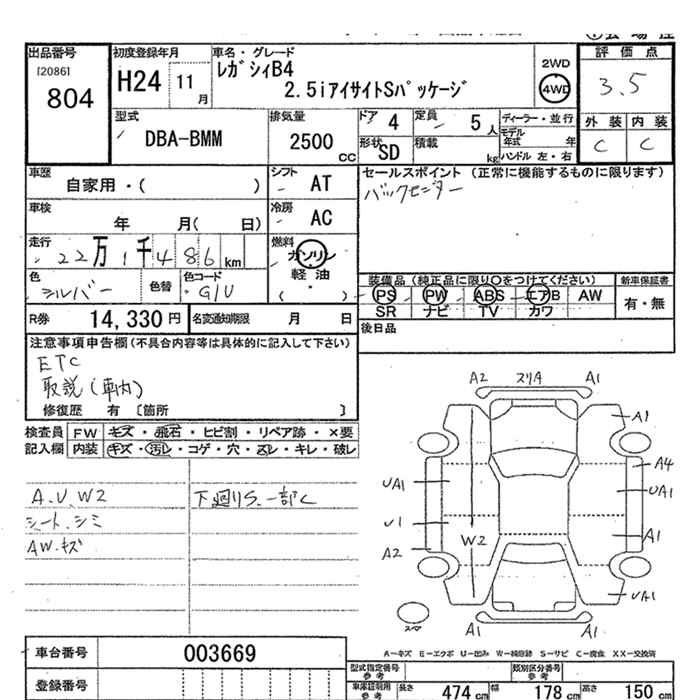 出品番号 初度登録年月 車名・グレード 2WD 評価点
[20861] H24 11月 レガシィB4 4WD 3.5
804 2.5iアイサイトSパッケージ
外装 内装
型式 排気量 ドア 4 定員 5人 ディーラー・並行 C C
DBA-BMM 2500cc 形状 SD 積載 kg モデル年式 年
ハンドル 左・右
車歴 シフト セールスポイント (正常に機能するものに限ります)
自家用・( ) AT
車検 冷房
年 月( 日) AC
走行 燃料
22万1千486km ガソリン
軽油
( )
色 色替 色コード 装備品 (純正品に限り○をつけてください) 新車保証書
シルバー G1U PS PW ABS エアB AW 有・無
SR ナビ TV カワ
R券 14,330円 名変通知期限 月 日 後日品
注意事項申告欄(不具合内容等は具体的に記入して下さい)
ETC
取説(車内)
修復歴 有 [箇所 ]
検査員 FW キズ・飛石・ヒビ割・リペア跡・×要
記入欄 内装 キズ・汚レ・コゲ・穴・スレ・キレ・破レ
A.U.W2 下廻りS.一部C
シート.シミ
AW.キズ
A2 スリA A1
A1
A4
UA1 UA1
U1 A1
W2
A2
UA1
スマ A1 A1
A-キズ E-エクボ U-凹み W-補修跡 S-サビ C-腐食 XX-交換済
車台番号 003669
型式指定番号 参考 類別区分番号 参考
登録番号 車庫証明用 参考 長さ 474cm 幅 178cm 高さ 150cm